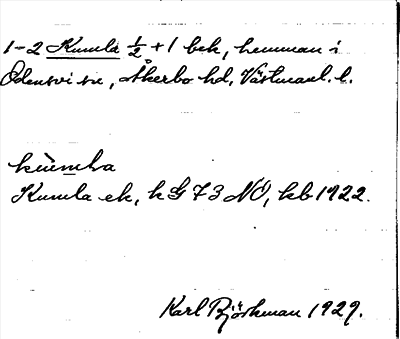 1-2 Kumla ½ + 1 bek, hemman i
Odensvi sn, Åkerbo hd, Västmanl. l.
kùmla
Kumla ek, k G 73 NÖ, kb 1922.
Karl Björkman 1929.